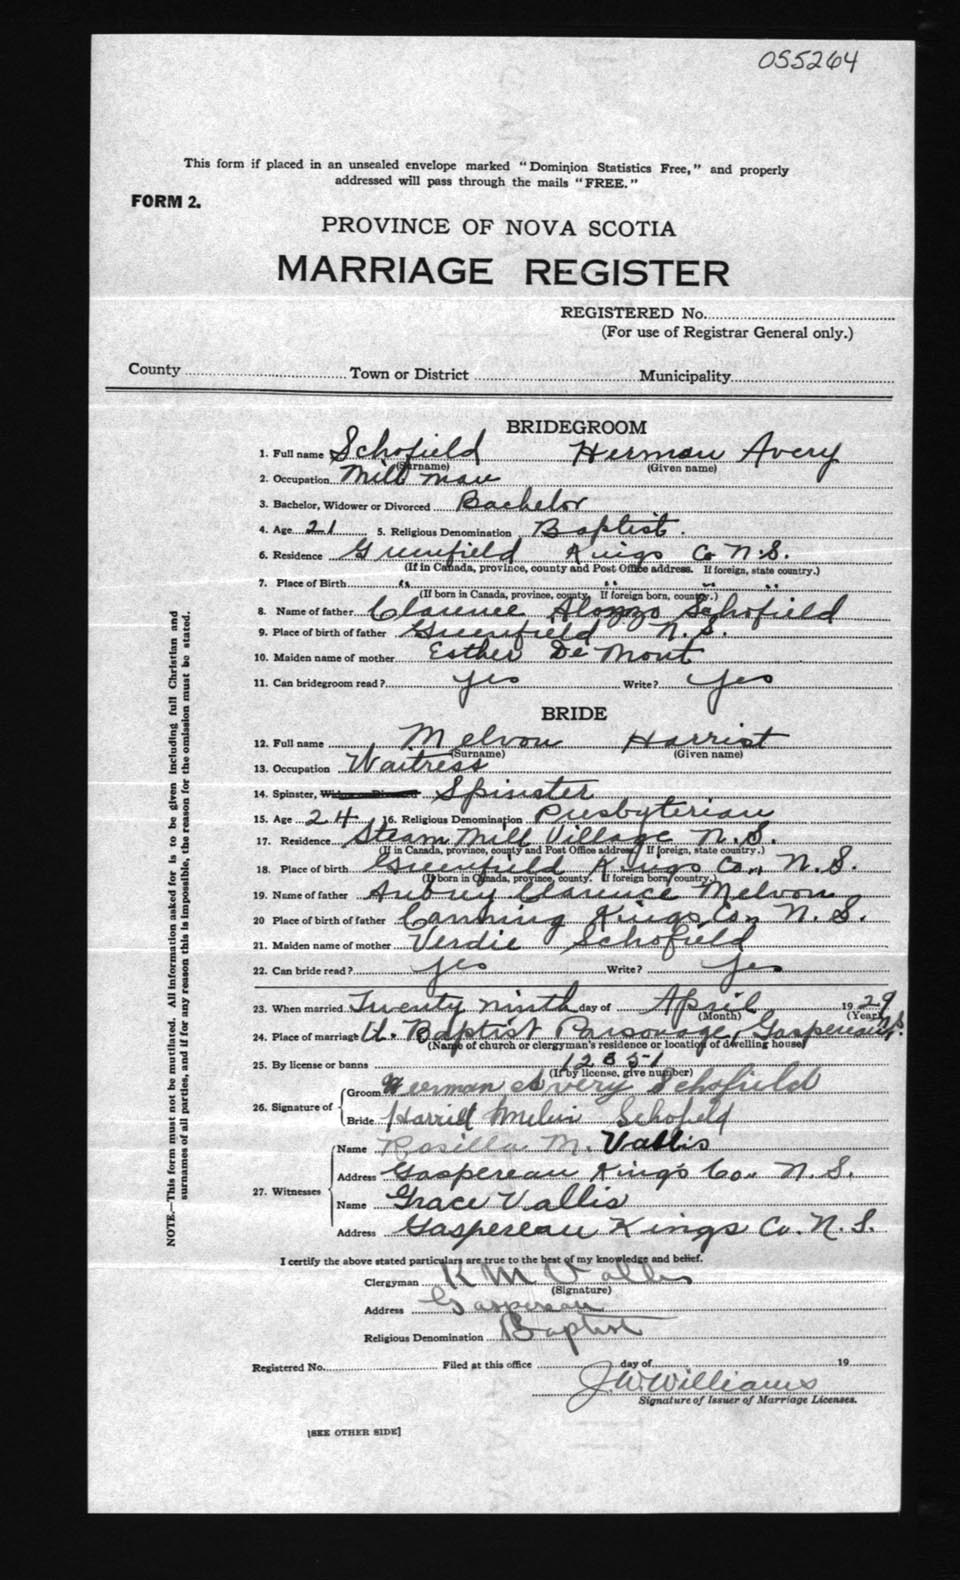 055264
This form if placed in an unsealed envelope marked "Dominion Statistics Free," and properly
addressed will pass through the mails "FREE."
FORM 2.
PROVINCE OF NOVA SCOTIA
MARRIAGE REGISTER
REGISTERED No.
(For use of Registrar General only.)
County Town or District Municipality
BRIDEGROOM
1. Full name Schofield Herman Avery
(Surname) (Given name)
2. Occupation Mill man
3. Bachelor, Widower or Divorced Bachelor
4. Age 21 5. Religious Denomination Baptist.
6. Residence Greenfield Kings Co N.S.
(If in Canada, province, county and Post Office address. If foreign, state country.)
7. Place of Birth " " " "
(If born in Canada, province, county. If foreign born, country.)
8. Name of father Clarence Alonzo Schofield
9. Place of birth of father Greenfield N.S.
10. Maiden name of mother Esther De Mont
11. Can bridegroom read? yes Write? yes
BRIDE
12. Full name Melvon Harriet
(Surname) (Given name)
13. Occupation Waitress
14. Spinster, Widow or Divorced Spinster
15. Age 24 16. Religious Denomination Presbyterian
17. Residence Steam Mill Village N.S.
(If in Canada, province, county and Post Office address. If foreign, state country.)
18. Place of birth Greenfield Kings Co., N.S.
(If born in Canada, province, county. If foreign born, country.)
19. Name of father Aubrey Clarence Melvon
20 Place of birth of father Canning Kings Co., N.S.
21. Maiden name of mother Verdie Schofield
22. Can bride read? yes Write? yes
23. When married Twenty ninth day of April 1929
(Month) (Year)
24. Place of marriage U. Baptist Parsonage, Gaspereau
(Name of church or clergyman's residence or location of dwelling house)
25. By license or banns 12851
(If by license, give number)
26. Signature of Groom Herman Avery Schofield
Bride Harriet Schofield
27. Witnesses Name Rosilla M. Vallis
Address Gaspereau Kings Co. N.S.
Name Grace Vallis
Address Gaspereau Kings Co. N.S.
I certify the above stated particulars are true to the best of my knowledge and belief.
Clergyman R M. Vallis
(Signature)
Address Gaspereau
Religious Denomination Baptist
Registered No. Filed at this office day of 19
J.W. Williams
Signature of Issuer of Marriage Licenses.
[SEE OTHER SIDE]
NOTE.—This form must not be mutilated. All information asked for is to be given including full Christian and
surnames of all parties, and if for any reason this is impossible, the reason for the omission must be stated.